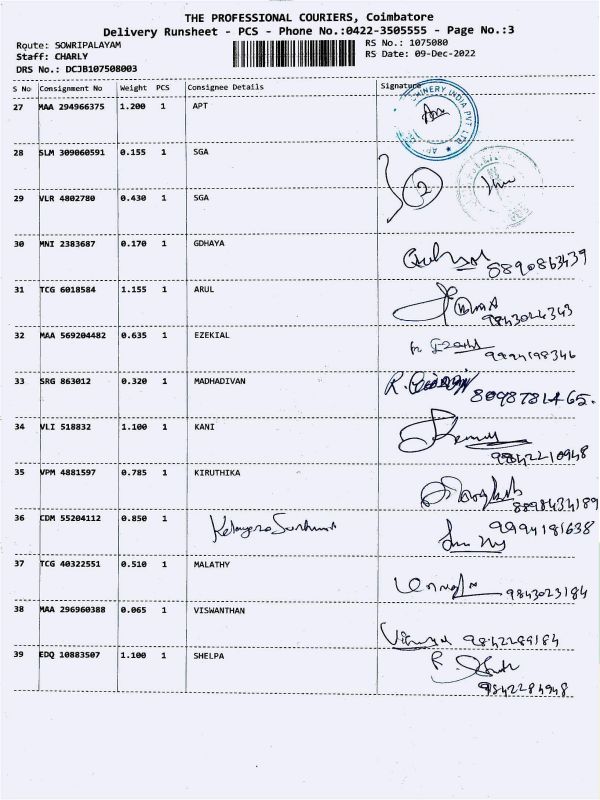 THE PROFESSIONAL COURIERS, Coimbatore
Delivery Runsheet - PCS - Phone No.:0422-3505555 - Page No.:3
Route: SOWRIPALAYAM RS No.: 1075080
Staff: CHARLY RS Date: 09-Dec-2022
DRS No.: DCJB107508003
S No Consignment No Weight PCS Consignee Details Signature
27 MAA 294966375 1.200 1 APT
28 SLM 309060591 0.155 1 SGA
29 VLR 4802780 0.430 1 SGA
30 MNI 2383687 0.170 1 GDHAYA
8890863439
31 TCG 6018584 1.155 1 ARUL
9843024343
32 MAA 569204482 0.635 1 EZEKIAL
9994198346
33 SRG 863012 0.320 1 MADHADIVAN
8098781465.
34 VLI 518832 1.100 1 KANI
9842210948
35 VPM 4881597 0.785 1 KIRUTHIKA
8898434189
36 CDM 55204112 0.850 1
9994181638
37 TCG 40322551 0.510 1 MALATHY
9843023184
38 MAA 296960388 0.065 1 VISWANTHAN
9842289184
39 EDQ 10883507 1.100 1 SHELPA
9842284948